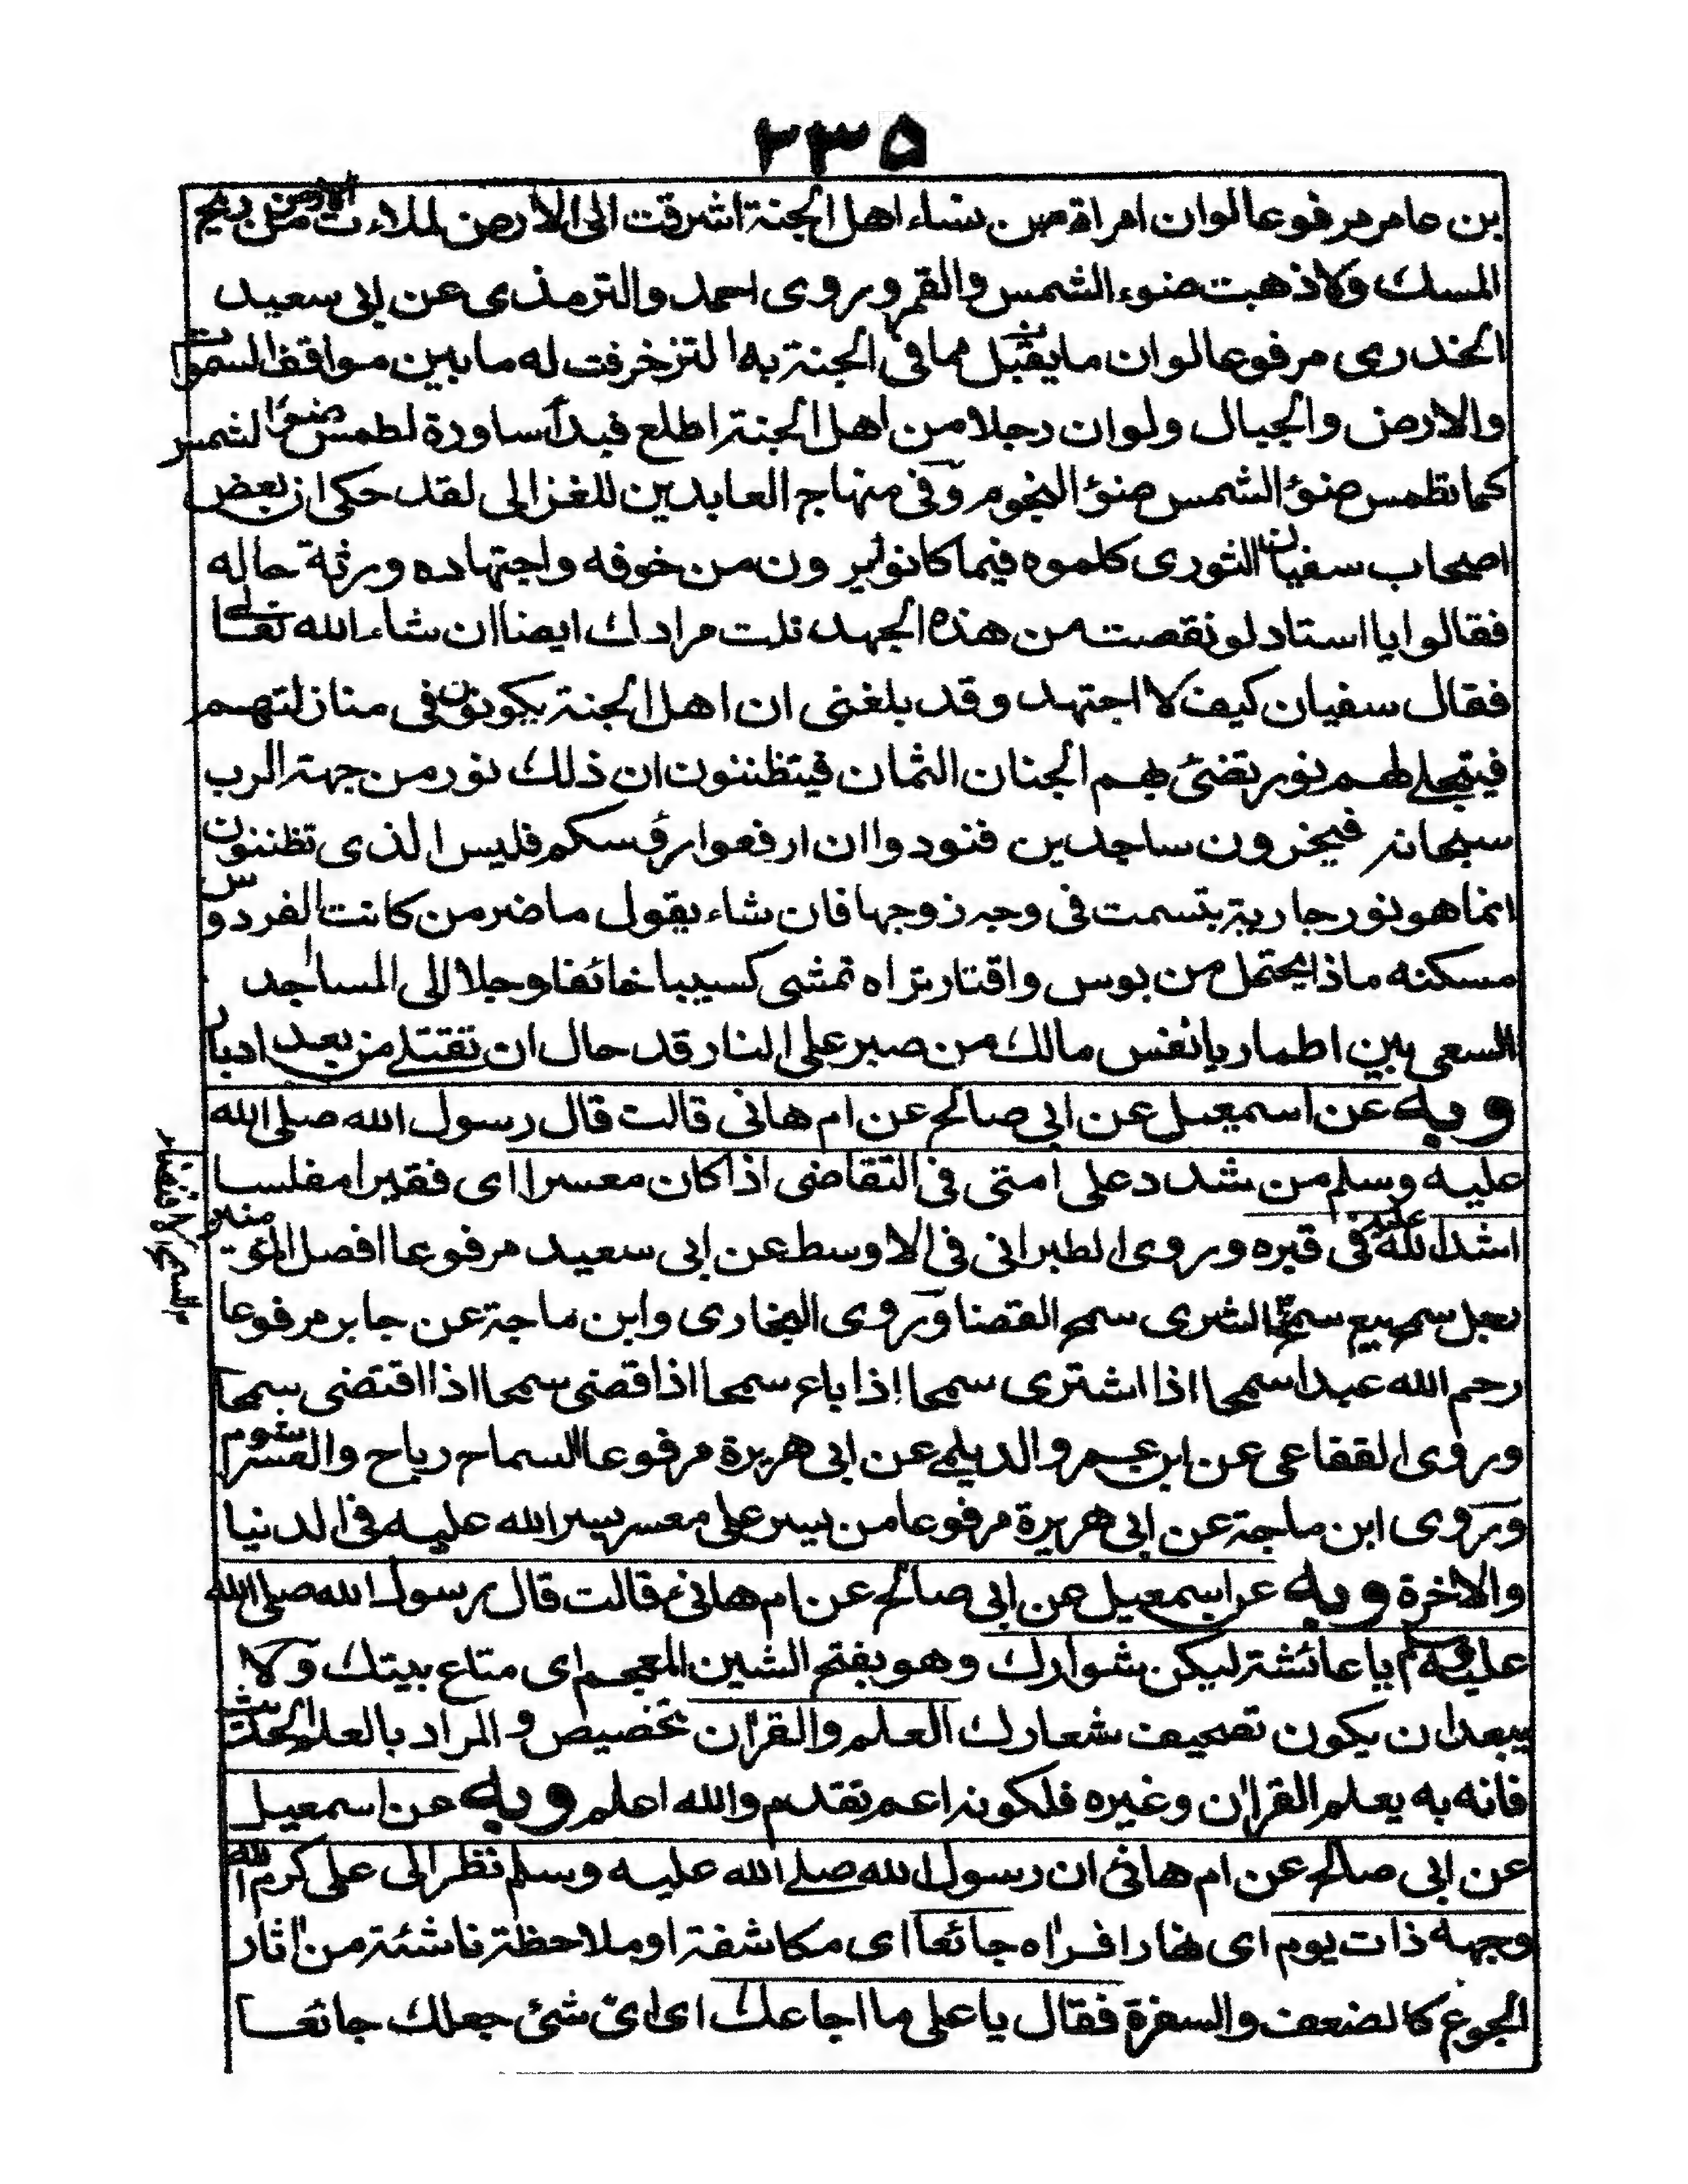 ٢٣٥
بن عامر مرفوعا لو ان امراة من نساء اهل الجنة اشرقت الى الارض لملاءت الارض من ريح
المسك ولاذهبت ضوء الشمس والقمر وروى احمد والترمذى عن ابى سعيد
الخدرى مرفوعا لو ان ما يقبل مما فى الجنة به ا لتزخرفت له ما بين مواقف السموات
والارض والجبال ولو ان رجلا من اهل الجنة اطلع فبدأ ساورة لطمس ضوء الشمس
كما تطمس ضوئ الشمس ضوئ النجوم وفى منهاج العابدين للغزالى لقد حكى ان بعض
اصحاب سفيان الثورى كلموه فيما كانوا يرون من خوفه واجتهاده ورثة حاله
فقالوا يا استاد لو نقصت من هذه الجهد نلت مرادك ايضا ان شاء الله تعالى
فقال سفيان كيف لا اجتهد وقد بلغنى ان اهل الجنة يكونون فى منازلتهم
فيتجلى لهم نور تضئ لهم الجنان الثمان فيتظننون ان ذلك نور من جهة الرب
سبحانه فيخرون ساجدين فنودوا ان ارفعوا رؤسكم فليس الذى تظننون
انما هو نور جارية بتسمت فى وجه زوجها فان شاء يقول ما ضر من كانت الفردوس
مسكنه ماذا يحتمل من بوس واقتار تراه تمشى كسيبا خائفا وجلا الى المساجد
السعى بين اطمار يا نفس مالك من صبر على النار قد حال ان تقتلى من بعد ادبار
وبه عن اسمعيل عن ابى صالح عن ام هانى قالت قال رسول الله صلى الله
عليه وسلم من شدد على امتى فى التقاضى اذا كان معسرا اى فقيرا مفلسا
اشد الله عليه فى قبره وروى الطبرانى فى الاوسط عن ابى سعيد مرفوعا افضل المؤمنين
رجل سمح البيع سمح الشرى سمح القضا وروى البخارى وابن ماجة عن جابر مرفوعا
سمح الاقتضاء
رحم الله عبدا سمحا اذا اشترى سمحا اذا باع سمحا اذا قضى سمحا اذا اقتضى سمحا
وروى القفاعى عن ابن عمر والديلمى عن ابى هريرة مرفوعا السماح رباح والعسر شوم
وروى ابن ماجة عن ابى هريرة مرفوعا من يسر على معسر يسر الله عليه فى الدنيا
والاخرة وبه عن اسمعيل عن ابى صالح عن ام هانئ قالت قال رسول الله صلى الله
عليه وسلم يا عائشة ليكن شوارك وهو بفتح الشين المعجم اى متاع بيتك ولا
يبعد ان يكون تصحيف شعارك العلم والقران تخصيص و المراد بالعلم الحديث
فانه به يعلم القران وغيره فلكونه اعم تقدم والله اعلم وبه عن اسمعيل
عن ابى صالح عن ام هانئ ان رسول الله صلى الله عليه وسلم نظر الى على كرم الله
وجهه ذات يوم اى نهارا فراه جائعا اى مكاشفة او ملاحظة ناشئة من اثار
الجوع كالضعف والسفرة فقال يا على ما اجاعك اى اىّ شئ جعلك جائعا